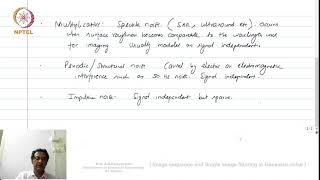 NPTEL
• Multiplicative: Speckle noise (SAR, ultrasound etc). Occurs
when surface roughness becomes comparable to the wavelength used
for imaging. Usually modeled as signal independent.
• Periodic/Structural noise: Caused by electric or electromagnetic
interference such as 50 Hz noise. Signal independent.
• Impulse noise: Signal independent but sparse.
Department of Electrical Engineering
( Image sequence and Single image filtering in Gaussian noise )